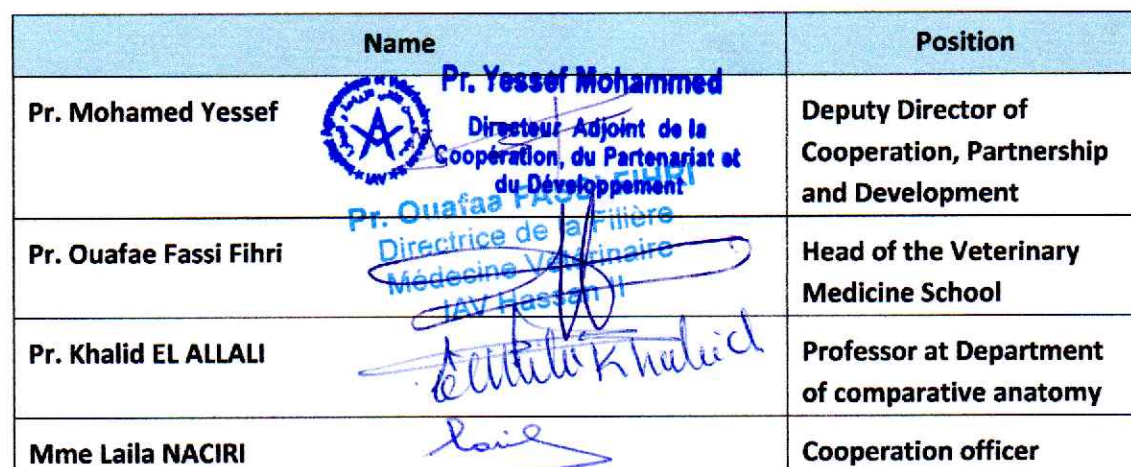 Name
Position
Pr. Mohamed Yessef
Pr. Yessef Mohammed
Directeur Adjoint de la
Coopération, du Partenariat et
du Développement
IAV
Deputy Director of
Cooperation, Partnership
and Development
Pr. Ouafae Fassi Fihri
Pr. Ouafaa FASSI FIHRI
Directrice de la Filière
Médecine Vétérinaire
IAV Hassan II
Head of the Veterinary
Medicine School
Pr. Khalid EL ALLALI
Khalid
Professor at Department
of comparative anatomy
Mme Laila NACIRI
Cooperation officer